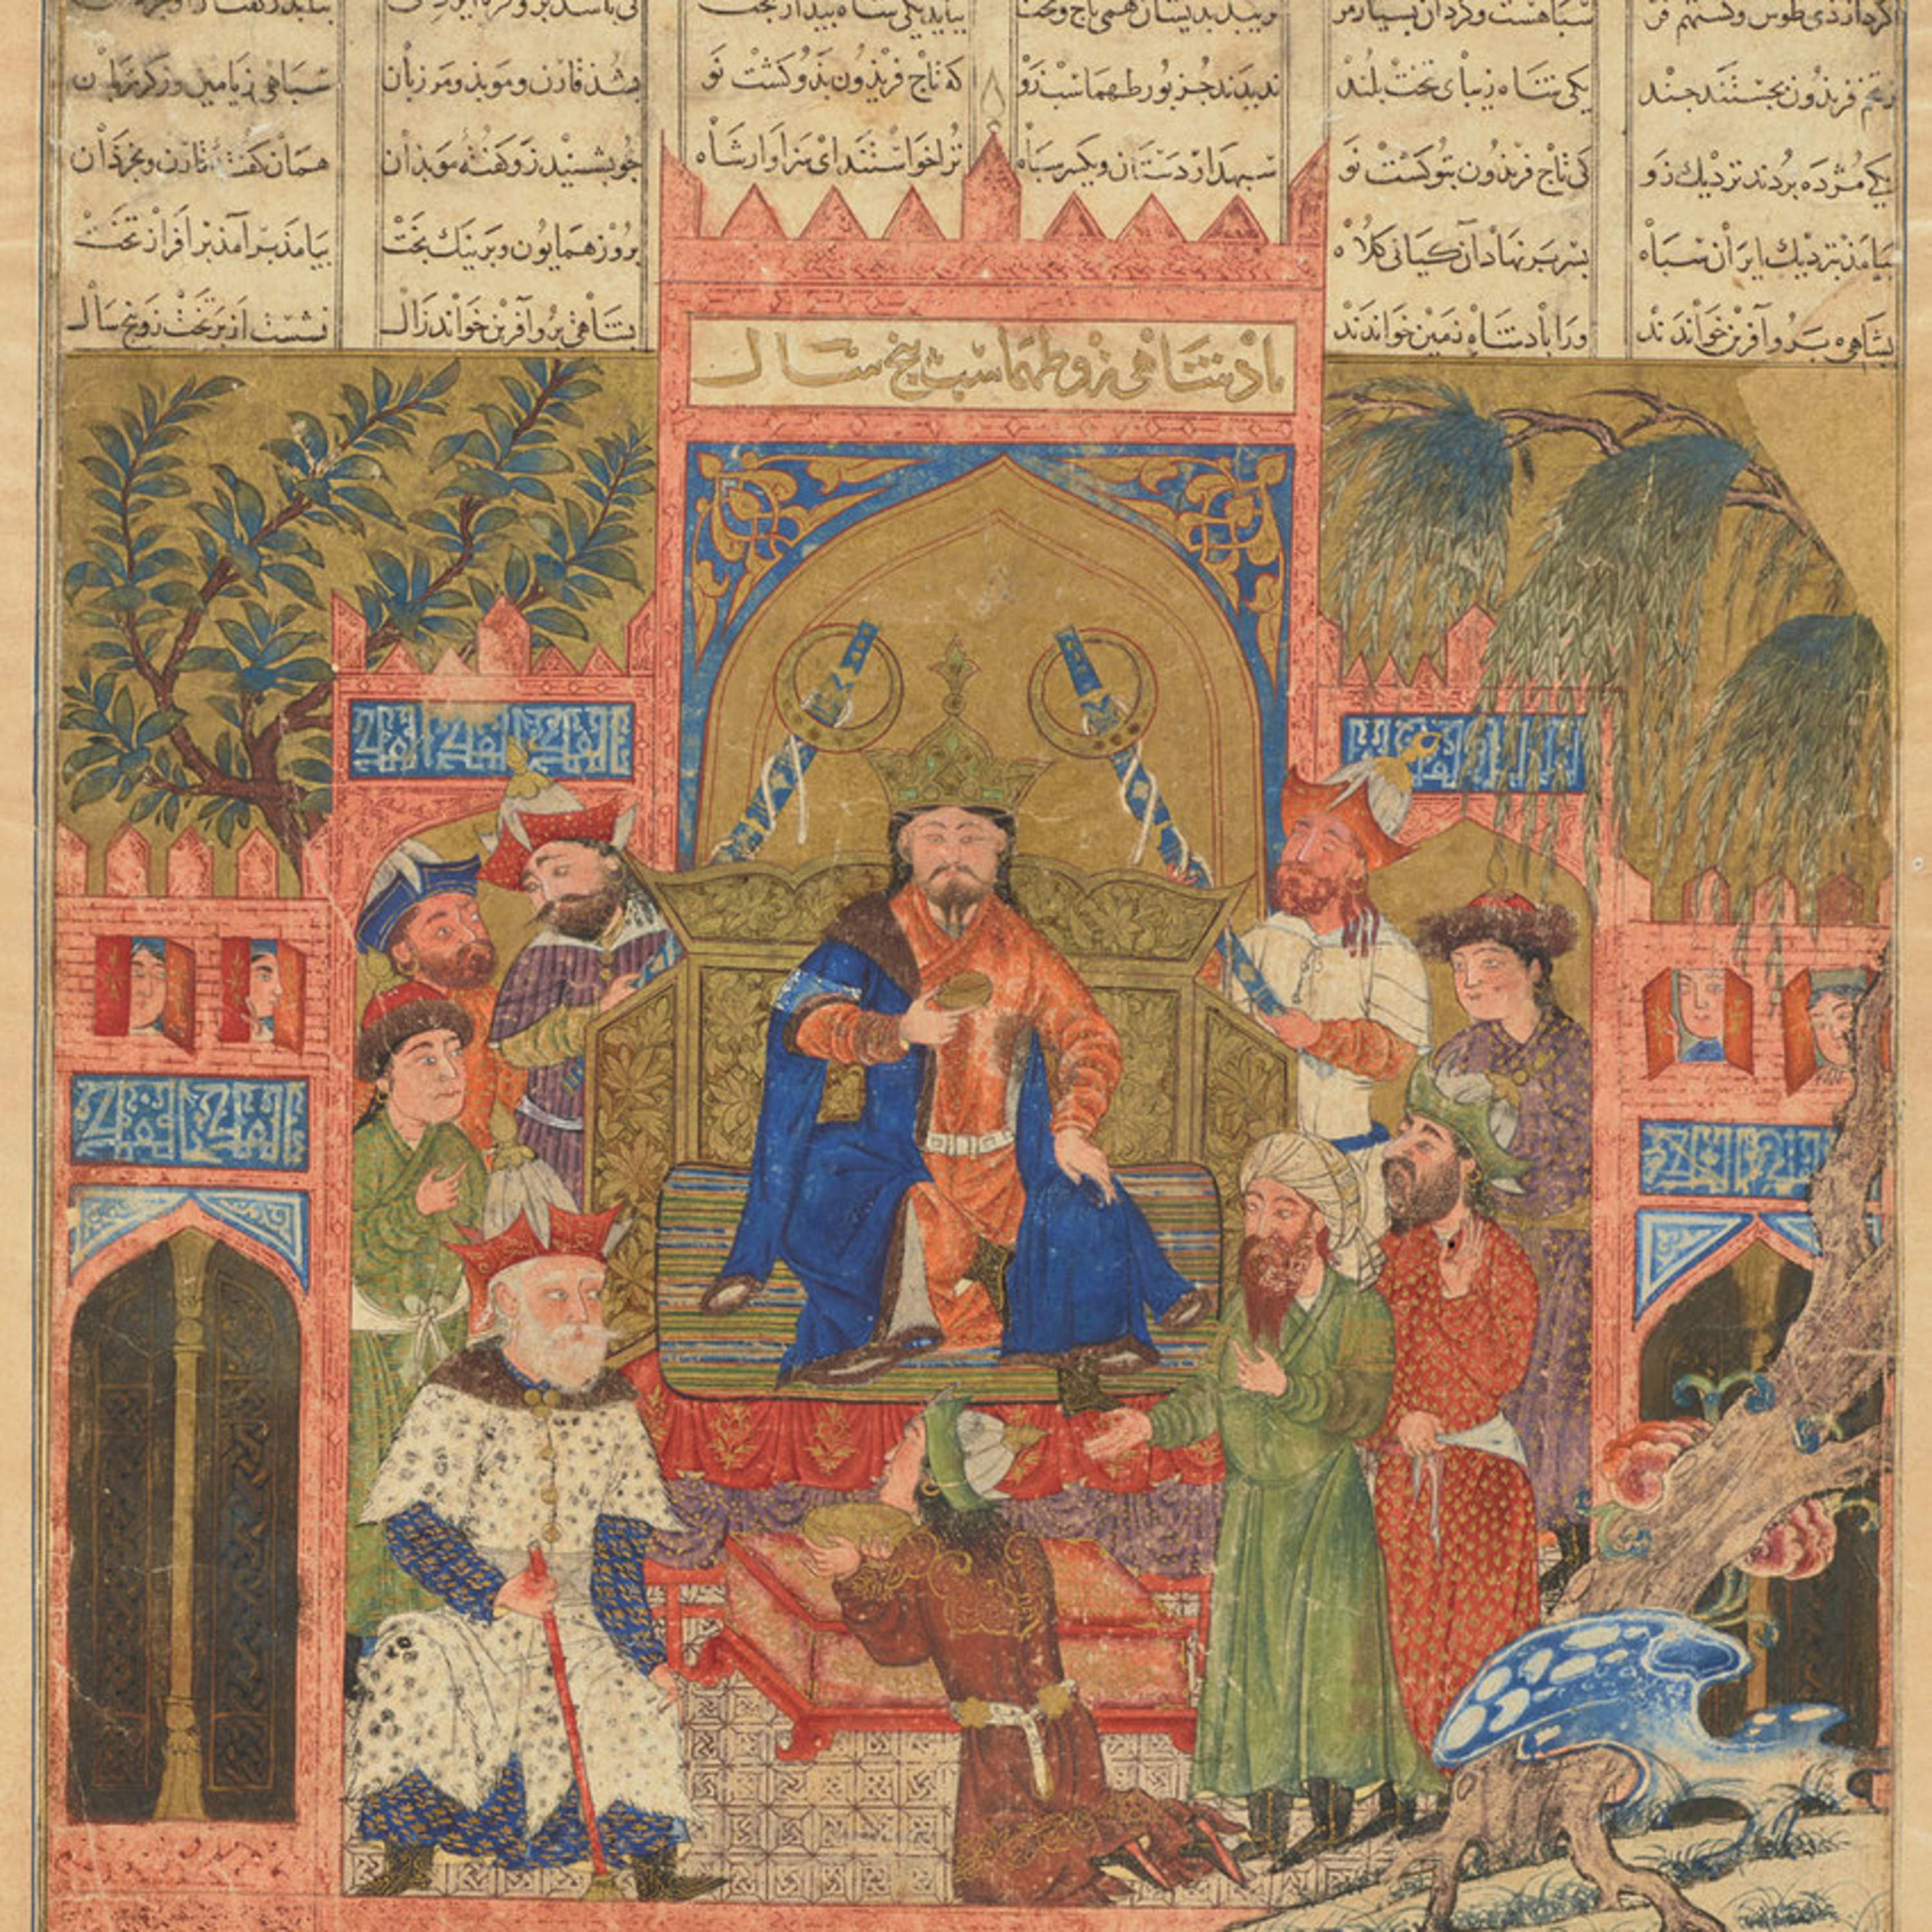 اگر داردی طوس و گستهم فر سپاهست و گردان بسیار مر
نزیبد بدیشان همی تاج و تخت بباید یکی شاه بیدار بخت
ز تخم فریذون بجستند چند یکی شاه زیبای تخت بلند ندیدند جز پور طهماسب زو که تاج فریذون بذو گشت نو بشد قارن و موبذ و مرزبان سپاهی ز بامین و ز کرزبان
یکی مژده بردند نزدیک زو کی تاج فریذون بتو گشت نو سبهدار دستان و یکسر سباه ترا خواستند ای سزاوار شاه چو بشنید زو گفته موبذان همان گفت قارن و بخرذان
بیامذ بنزدیک ایران سباه بسر بر نهاد آن کیانی کلاه بروز همایون و بر نیک بخت بیامذ برآمذ بر افراز تخت
بشاهی برو آفرین خواندند ورا پادشاه زمین خواندند بشاهی برو آفرین خواند زال نشست از بر تخت زو پنج سال
پادشاهی زو طهماسب پنج سال